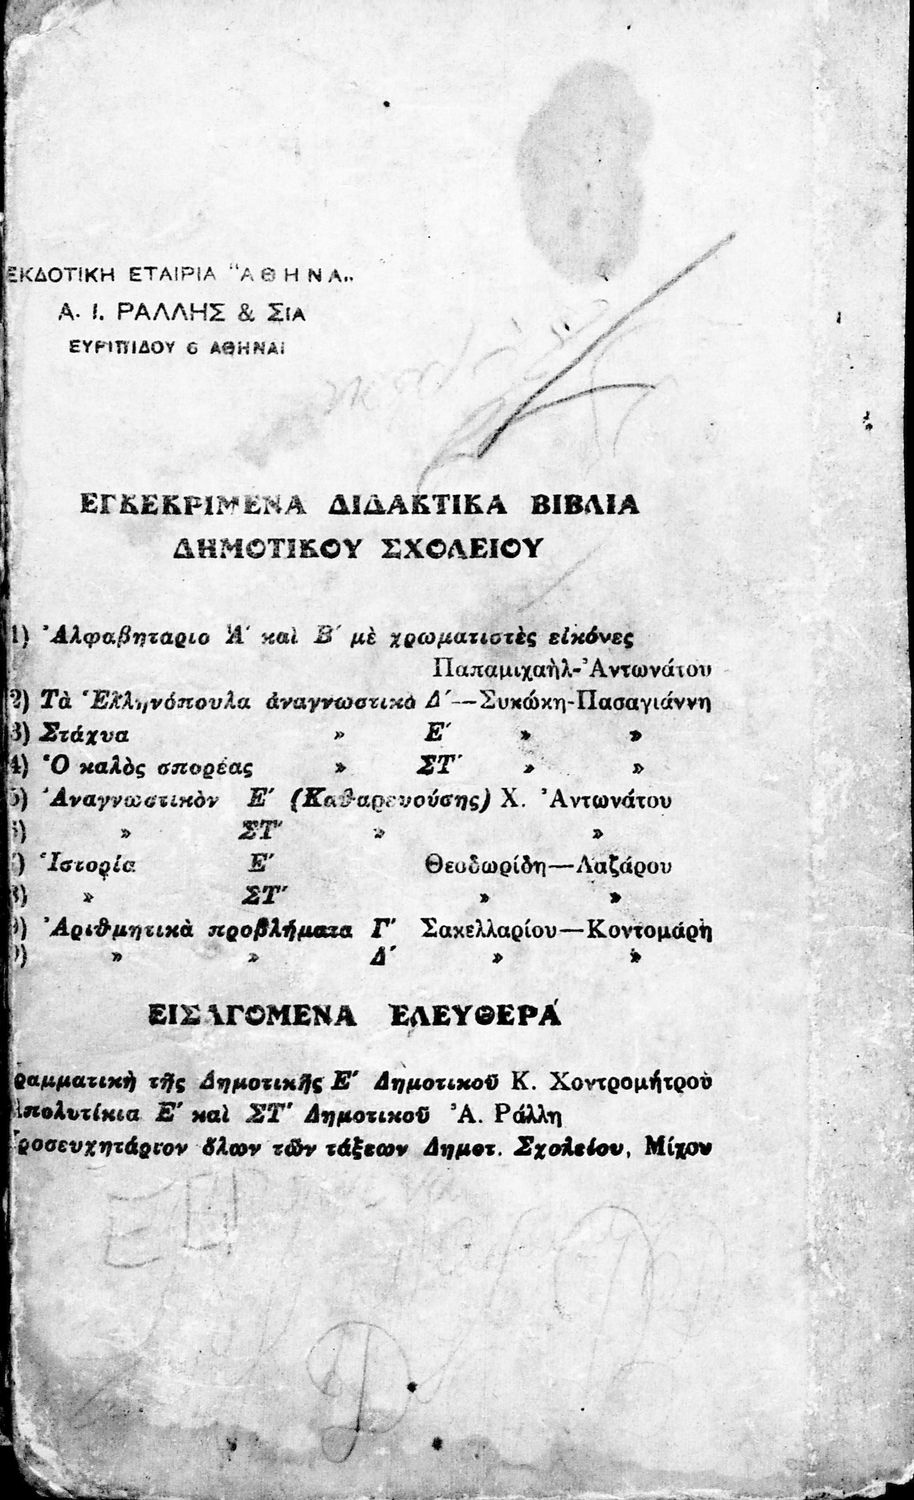 ΕΚΔΟΤΙΚΗ ΕΤΑΙΡΙΑ "ΑΘΗΝΑ„
Α. Ι. ΡΑΛΛΗΣ & ΣΙΑ
ΕΥΡΙΠΙΔΟΥ 6 ΑΘΗΝΑΙ
ΕΓΚΕΚΡΙΜΕΝΑ ΔΙΔΑΚΤΙΚΑ ΒΙΒΛΙΑ
ΔΗΜΟΤΙΚΟΥ ΣΧΟΛΕΙΟΥ
1) Ἀλφαβητάριο Α΄ καὶ Β΄ μὲ χρωματιστὲς εἰκόνες
Παπαμιχαὴλ-Ἀντωνάτου
2) Τὰ Ἑλληνόπουλα ἀναγνωστικὸ Δ΄—Συκώκη-Πασαγιάννη
3) Στάχυα » Ε΄ » »
4) Ὁ καλὸς σπορέας » ΣΤ΄ » »
5) Ἀναγνωστικὸν Ε΄ (Καθαρευούσης) Χ. Ἀντωνάτου
) » ΣΤ΄ » »
) Ἱστορία Ε΄ Θεοδωρίδη—Λαζάρου
8) » ΣΤ΄ » »
9) Ἀριθμητικὰ προβλήματα Γ΄ Σακελλαρίου—Κοντομάρη
) » » Δ΄ » »
ΕΙΣΑΓΟΜΕΝΑ ΕΛΕΥΘΕΡΑ
ραμματικὴ τῆς Δημοτικῆς Ε΄ Δημοτικοῦ Κ. Χοντρομήτρου
πολυτίκια Ε΄ καὶ ΣΤ΄ Δημοτικοῦ Ἀ. Ράλλη
ροσευχητάριον ὅλων τῶν τάξεων Δημοτ. Σχολείου, Μίχου